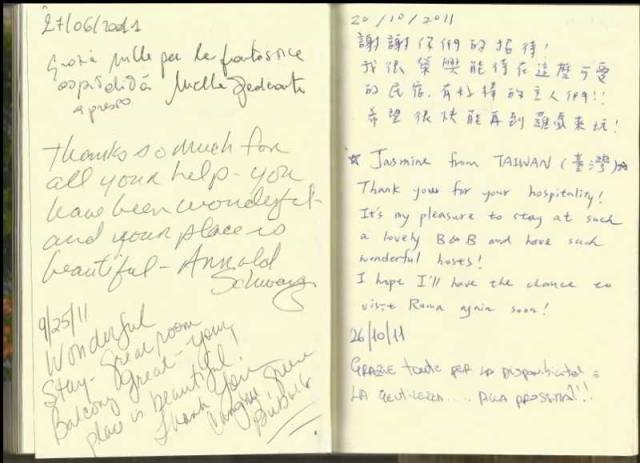 27/06/2011
Grazie mille per la fantastica
ospitalità
a presto
Thanks so much for
all your help - you
have been wonderful
and your place is
beautiful - Arnold
9/25/11
Wonderful
Stay - Great room
Balcony great - your
place is beautiful!
Thank you
20/10/2011
謝謝你們的招待!
我很榮興能待在這麼可愛
的民宿,有好棒的主人們!!
希望很快能再到羅馬來玩!
☆ Jasmine from TAIWAN (臺灣)☆
Thank you for your hospitality!
It's my pleasure to stay at such
a lovely B&B and have such
wonderful hosts!
I hope I'll have the chance to
visit Roma again soon!
26/10/11
GRAZIE tante PER LA DISPONIBILITÀ E
LA GENTILEZZA.... ALLA PROSSIMA!!